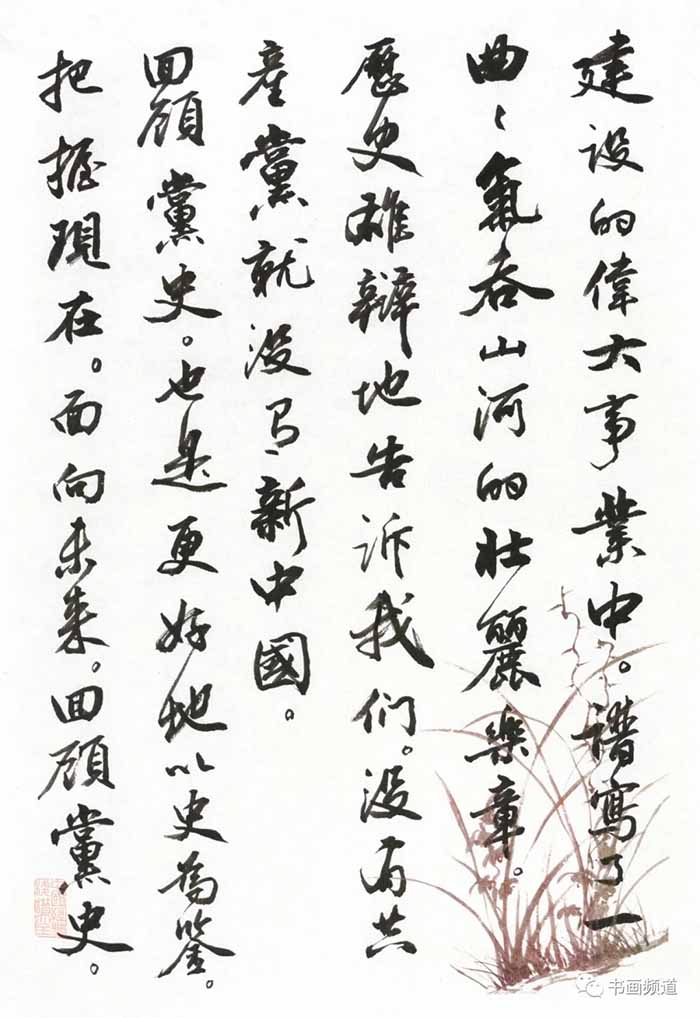 建设的偉大事業中。譜寫了一
曲〻氣吞山河的壯麗樂章。
歷史雄辯地告诉我们。没有共
產黨就没有新中國。
回顾黨史。也是更好地以史為鉴。
把握現在。面向未来。回顾黨史。
书画频道